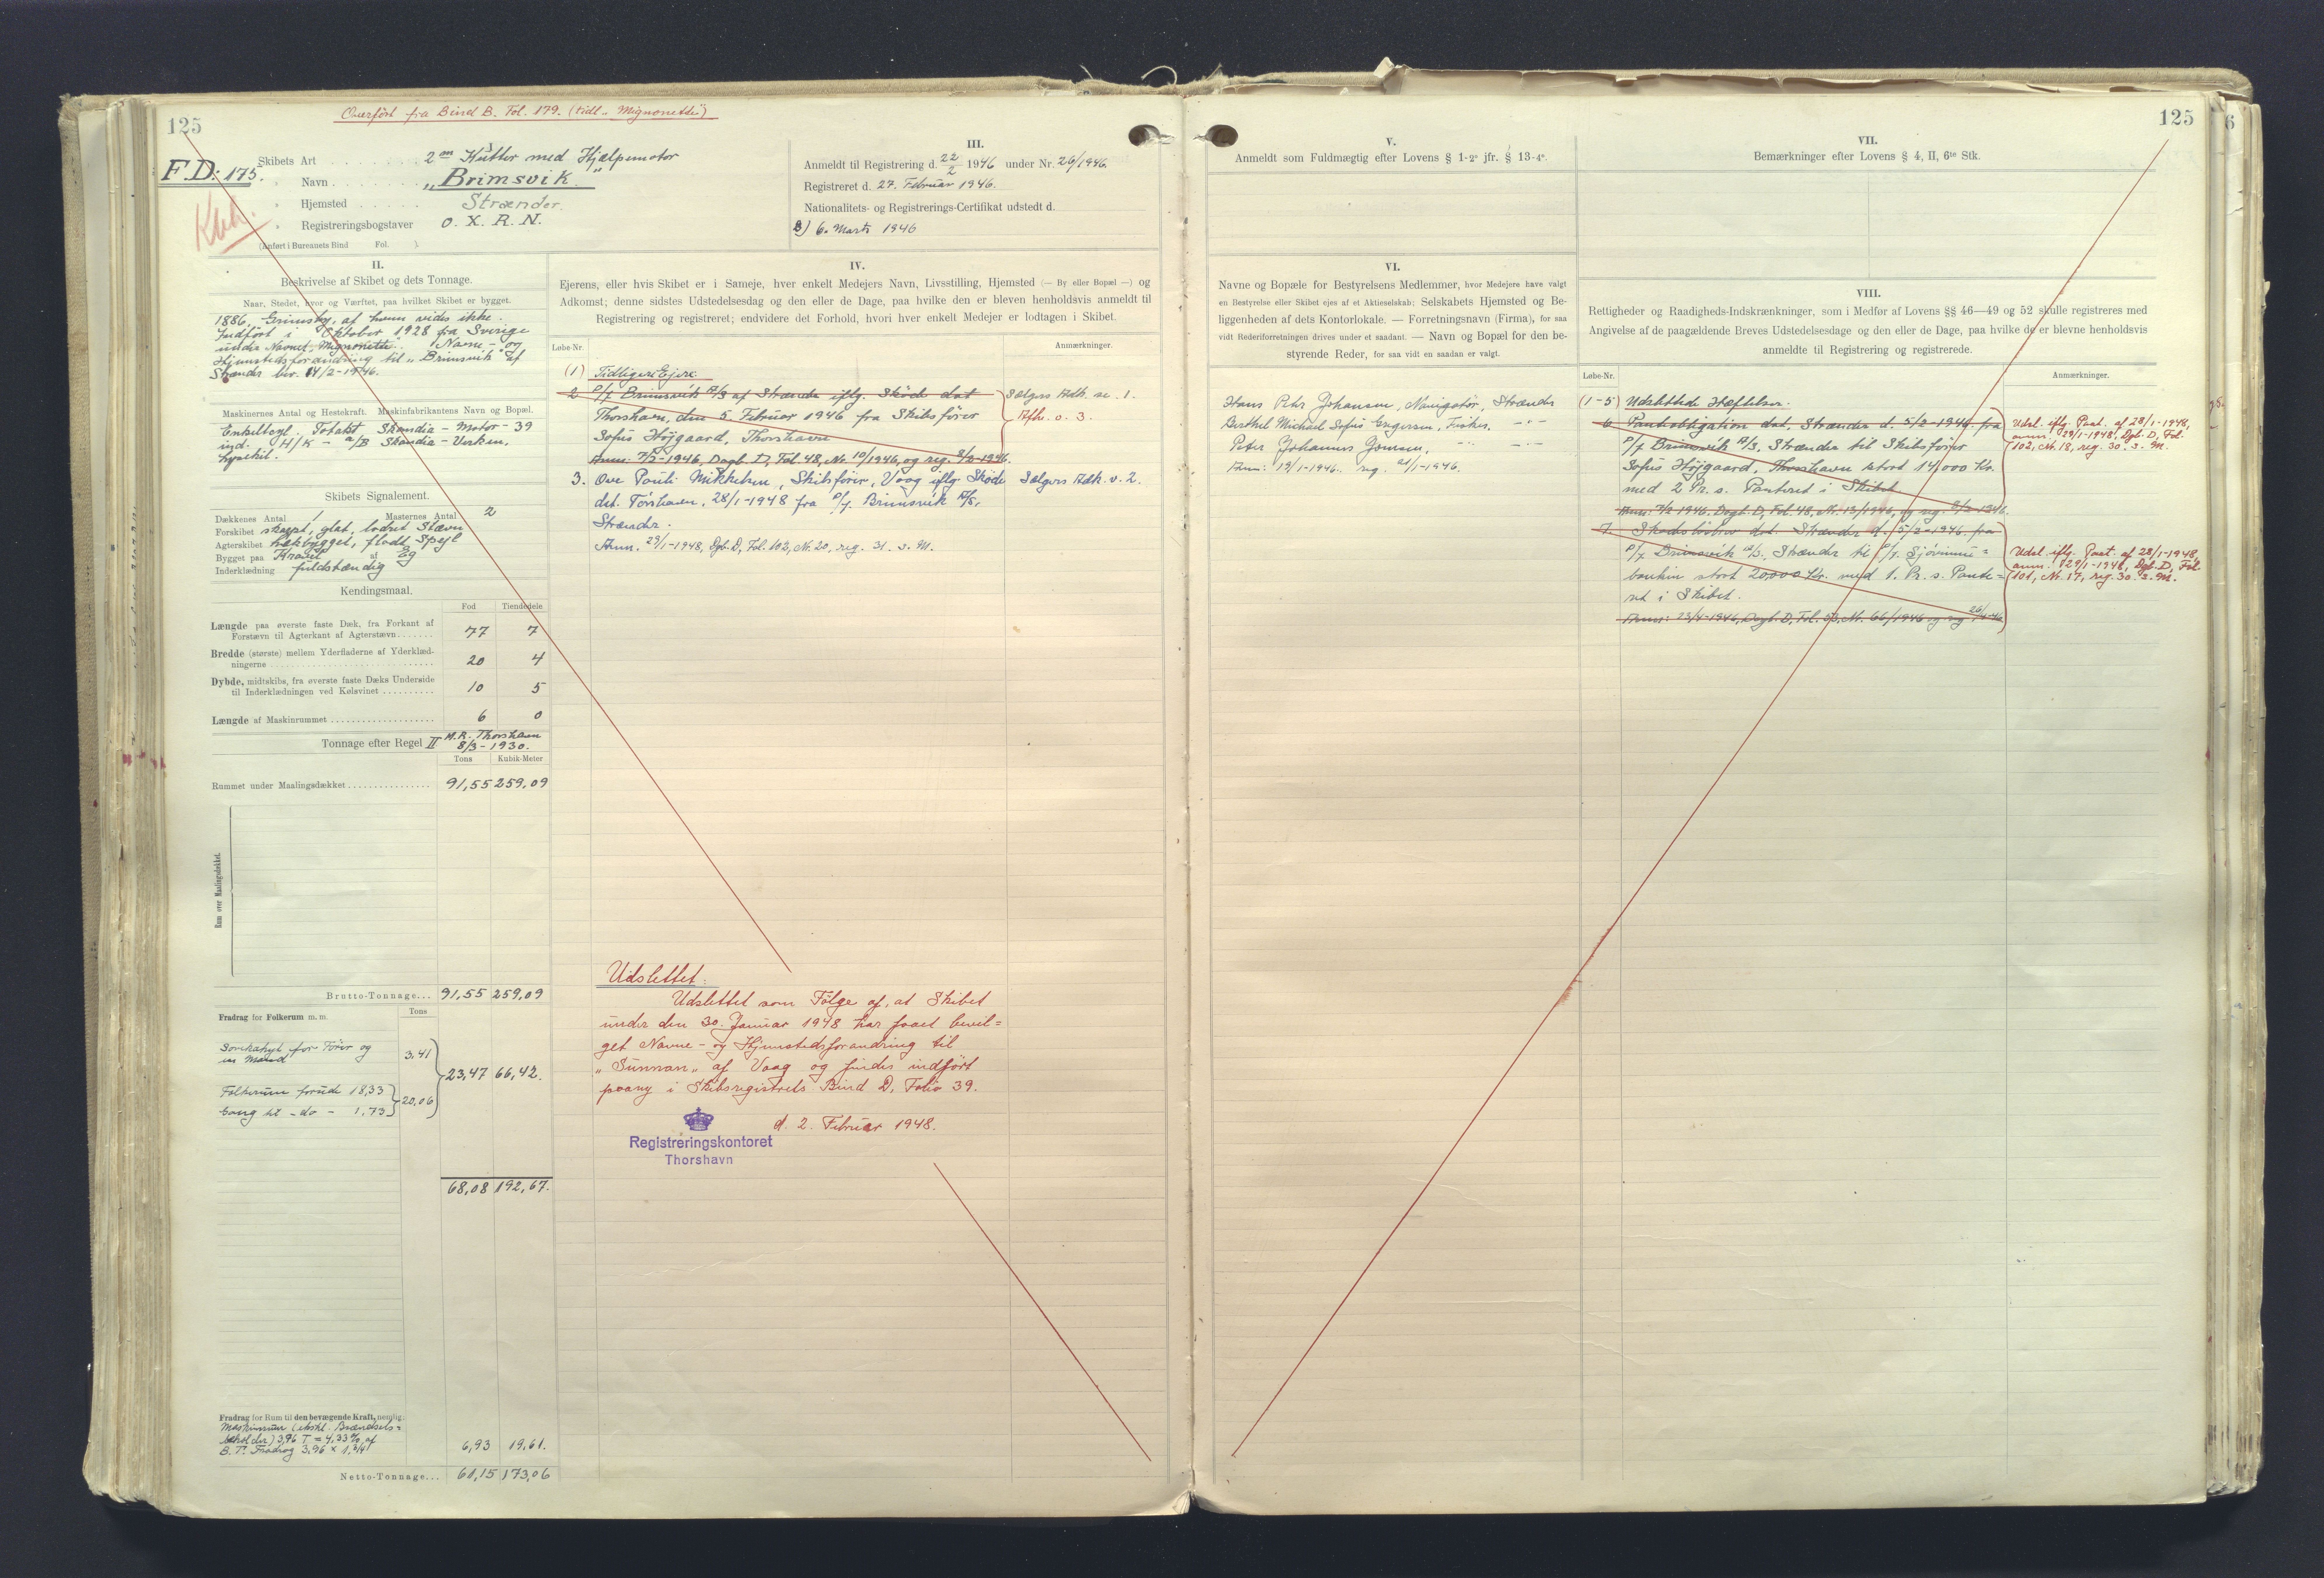 Overført fra Bind B. Fol. 179. (tidl. „Mignonette“)
125
F.D: 175.
Skibets Art . . . . . . . . 2 m Kutter med Hjælpemotor
" Navn . . . . . . . . „Brimsvik“
" Hjemsted . . . . . . Strænder.
" Registreringsbogstaver O. X. R. N.
(Anført i Bureauets Bind Fol. ).
III.
Anmeldt til Registrering d. 22/2 1946 under Nr. 26/1946.
Registreret d. 27. Februar 1946.
Nationalitets- og Registrerings-Certifikat udstedt d.
B) 6. Marts 1946
II.
Beskrivelse af Skibet og dets Tonnage.
Naar, Stedet, hvor og Værftet, paa hvilket Skibet er bygget.
1886, Grimsby, af hvem vides ikke.
Indført i Oktober 1928 fra Sverige
under Navnet „Mignonette“. Navne- og
Hjemstedsforandring til „Brimsvik“ af
Strænder bev. 14/2-1946.
Maskinernes Antal og Hestekraft. Maskinfabrikantens Navn og Bopæl.
Enkeltcyl. Totakt Skandia-Motor - 39
ind. H/K - A/B Skandia-Verken,
Lysekil.
Skibets Signalement.
Dækkenes Antal 1 Masternes Antal 2
Forskibet skarpt, glat, lodret Stævn
Agterskibet hækbygget, fladt Spejl
Bygget paa Kravel af Eg
Inderklædning fuldstændig
Kendingsmaal.
Fod Tiendedele
Længde paa øverste faste Dæk, fra Forkant af
Forstævn til Agterkant af Agterstævn . . . . . . . 77 7
Bredde (største) mellem Yderfladerne af Yderklæd-
ningerne . . . . . . . 20 4
Dybde, midtskibs, fra øverste faste Dæks Underside
til Inderklædningen ved Kølsvinet . . . . . . . 10 5
Længde af Maskinrummet . . . . . . . 6 0
Tonnage efter Regel II M.R. Thorshavn
8/3-1930.
Tons Kubik-Meter
Rummet under Maalingsdækket . . . . . . . 91,55 259,09
Rum over Maalingsdækket.
Brutto-Tonnage... 91,55 259,09
Fradrag for Folkerum m. m. Tons
Sovekahyt for Fører og
en Mand 3,41
23,47 66,42.
Folkerum forude 18,33
Gang til - do - 1,73 20,06
68,08 192,67.
Fradrag for Rum til den bevægende Kraft, nemlig:
Maskinrum (ekskl. Brændsels-
beholder) 3,96 T = 4,33% af
B.T. Fradrag 3,96 x 1 3/4 6,93 19,61.
Netto-Tonnage... 61,15 173,06
IV.
Ejerens, eller hvis Skibet er i Sameje, hver enkelt Medejers Navn, Livsstilling, Hjemsted (— By eller Bopæl —) og
Adkomst; denne sidstes Udstedelsesdag og den eller de Dage, paa hvilke den er bleven henholdsvis anmeldt til
Registrering og registreret; endvidere det Forhold, hvori hver enkelt Medejer er lodtagen i Skibet.
Løbe-Nr. Anmærkninger.
(1) Tidligere Ejere.
2 P/f Brimsvik A/S af Strænder iflg. Skøde dat
Thorshavn, den 5 Februar 1946 fra Skibsfører
Sofus Højgaard, Thorshavn
Anm: 7/2-1946, Dagb. D, Fol. 48, Nr. 10/1946, og reg. 8/2-1946.
Sælgers Adk. se. 1.
Afh. o. 3.
3. Ove Pauli Mikkelsen, Skibsfører, Vaag iflg. Skøde
dat. Tórshavn, 28/1-1948 fra P/f. Brimsvík A/S,
Strænder.
Anm. 29/1-1948, Dgb. D, Fol. 102, Nr. 20, reg. 31. s. M.
Sælgers Adk. v. 2.
Udslettet:
Udslettet som Følge af, at Skibet
under den 30. Januar 1948 har faaet bevil=
get Navne- og Hjemstedsforandring til
„Sunnan„ af Vaag og findes indført
paany i Skibsregistrets Bind D, Folio 39.
d. 2. Februar 1948.
Registreringskontoret
Thorshavn
V.
Anmeldt som Fuldmægtig efter Lovens § 1-2º jfr. § 13-4º.
VI.
Navne og Bopæle for Bestyrelsens Medlemmer, hvor Medejere have valgt
en Bestyrelse eller Skibet ejes af et Aktieselskab; Selskabets Hjemsted og Be-
liggenheden af dets Kontorlokale. — Forretningsnavn (Firma), for saa
vidt Rederiforretningen drives under et saadant. — Navn og Bopæl for den be-
styrende Reder, for saa vidt en saadan er valgt.
Hans Petur Johansen, Navigatør, Strænder
Berthel Michael Sofus Ennigersen, Fisker, -"-
Peter Johannes Joensen, -"- -"-
Anm: 19/1-1946. reg. 21/1-1946.
125
VII.
Bemærkninger efter Lovens § 4, II, 6te Stk.
VIII.
Rettigheder og Raadigheds-Indskrænkninger, som i Medfør af Lovens §§ 46—49 og 52 skulle registreres med
Angivelse af de paagældende Breves Udstedelsesdage og den eller de Dage, paa hvilke de er blevne henholdsvis
anmeldte til Registrering og registrerede.
Løbe-Nr. Anmærkninger.
(1-5) Udslettede Hæftelser.
6 Pantobligation dat. Strænder d. 5/2-1946 fra
P/f Brimsvík A/S, Strænder til Skibsfører
Sofus Højgaard, Thorshavn stort 14,000 Kr.
med 2 Pr. s. Panteret i Skibet
Anm: 7/2 1946, Dagb. D, Fol 48, Nr. 13/1946, og reg. 8/2-1946.
Udsl. iflg. Paat. af 28/1-1948,
anm. 29/1-1948, Dgb. D, Fol.
102, Nr. 18, reg. 30. s. M.
7. Skadesløsbrev dat. Strænder d. 5/2-1946. fra
P/f Brimsvik A/S, Strænder til P/f. Sjóvinnu=
bankin stort 20,000 Kr. med 1. Pr. s. Pante=
ret i Skibet.
Anm: 23/4-1946, Dagb. D, Fol. 53, Nr. 66/1946 og reg 26/4-46
Udsl. iflg. Paat. af 28/1-1948,
anm. 29/1-1948, Dgb. D, Fol.
101, Nr. 17, reg. 30. s. M.
6